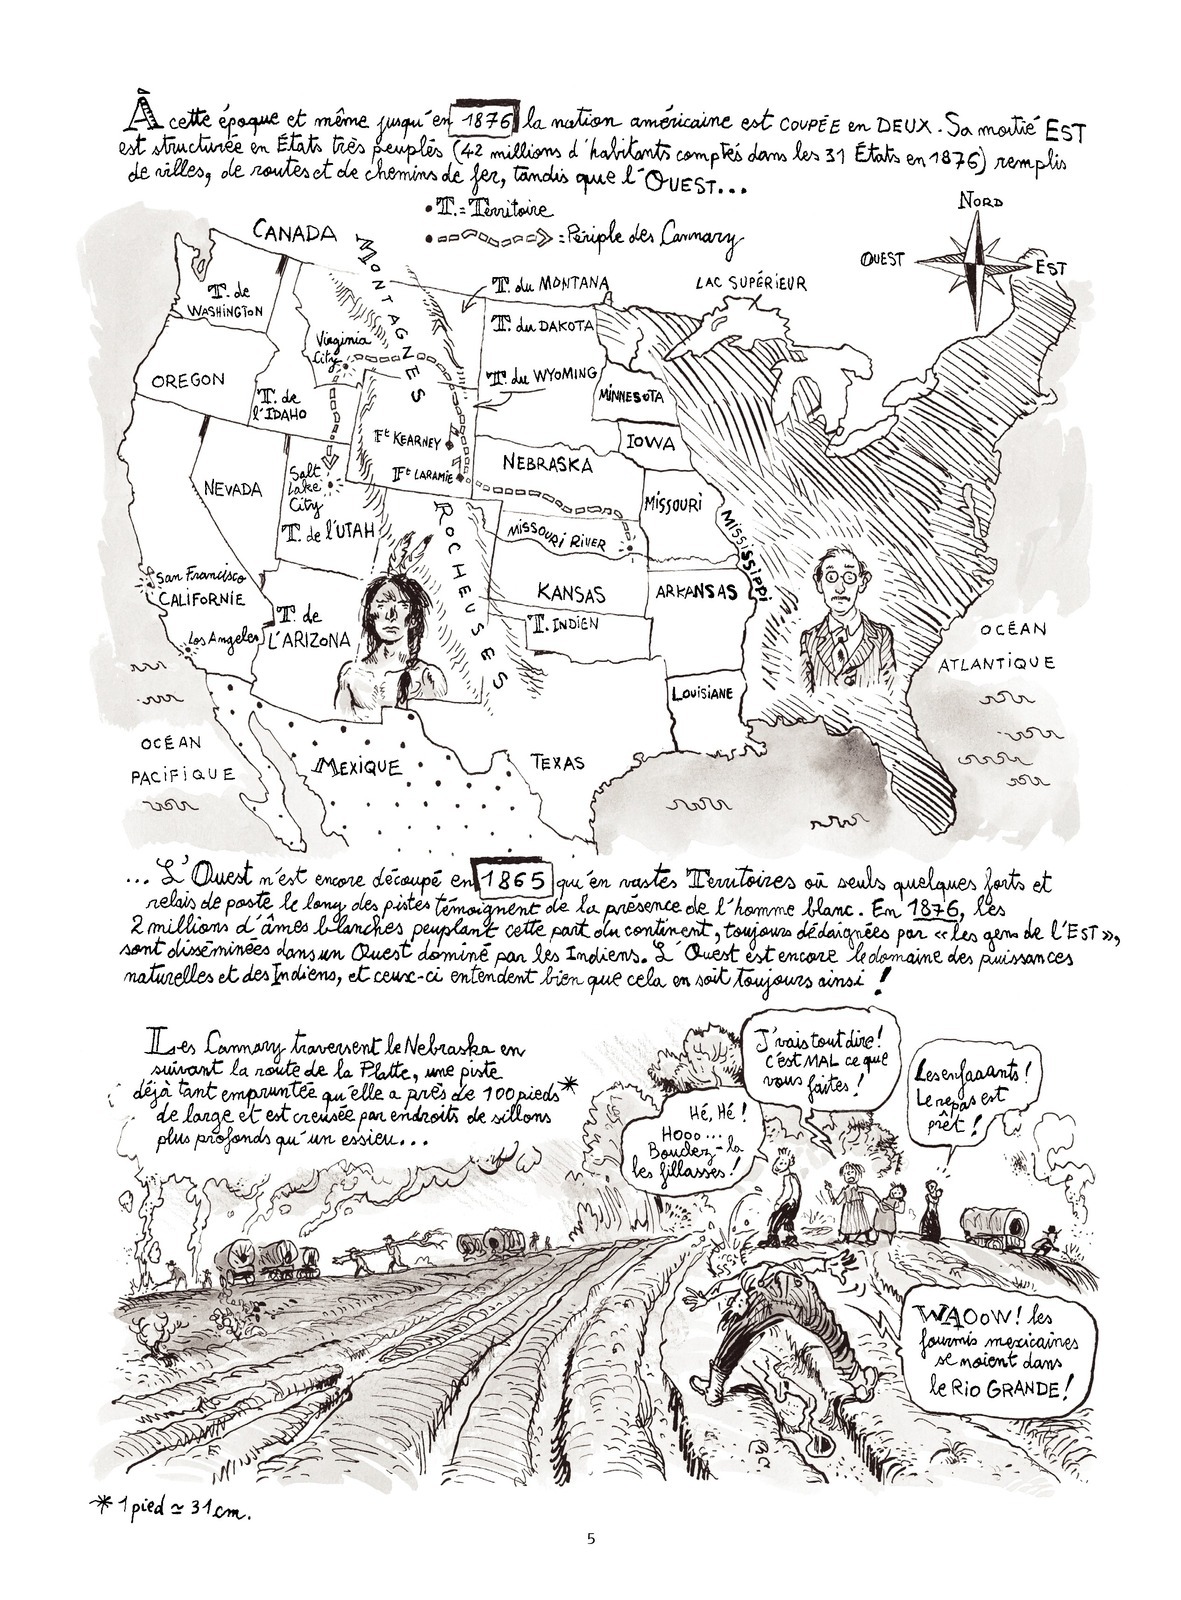 À cette époque et même jusqu'en 1876 la nation américaine est COUPÉE en DEUX. Sa moitié EST
est structurée en États très peuplés (42 millions d'habitants comptés dans les 31 États en 1876) remplis
de villes, de routes et de chemins de fer, tandis que l'OUEST...
• T. = Territoire
• = Périple des Cannary
NORD
OUEST
EST
CANADA
MONTAGNES
T. du MONTANA
LAC SUPÉRIEUR
T. de
WASHINGTON
T. du DAKOTA
Virginia
City
OREGON
T. du WYOMING
MINNESOTA
T. de
l'IDAHO
Ft KEARNEY
IOWA
NEBRASKA
Ft LARAMIE
Salt
Lake
City
NEVADA
MISSOURI
ROCHEUSES
MISSISSIPPI
T. de l'UTAH
MISSOURI RIVER
San Francisco
CALIFORNIE
KANSAS
ARKANSAS
T. de
L'ARIZONA
T. INDIEN
Los Angeles
OCÉAN
ATLANTIQUE
LOUISIANE
OCÉAN
PACIFIQUE
MEXIQUE
TEXAS
... L'Ouest n'est encore découpé en 1865 qu'en vastes Territoires où seuls quelques forts et
relais de poste le long des pistes témoignent de la présence de l'homme blanc. En 1876, les
2 millions d'âmes blanches peuplant cette part du continent, toujours dédaignées par «les gens de l'EST»,
sont disséminées dans un Ouest dominé par les Indiens. L'Ouest est encore le domaine des puissances
naturelles et des Indiens, et ceux-ci entendent bien que cela en soit toujours ainsi !
Les Cannary traversent le Nebraska en
suivant la route de la Platte, une piste
déjà tant empruntée qu'elle a près de 100 pieds*
de large et est creusée par endroits de sillons
plus profonds qu'un essieu...
Hé, Hé !
Hooo...
Boudez-la
les fillasses !
J'vais tout dire !
c'est MAL ce que
vous faites !
Les enfaaants !
Le repas est
prêt !
WAOoW ! les
fourmis mexicaines
se noient dans
le Rio GRANDE !
* 1 pied ≃ 31 cm.
5